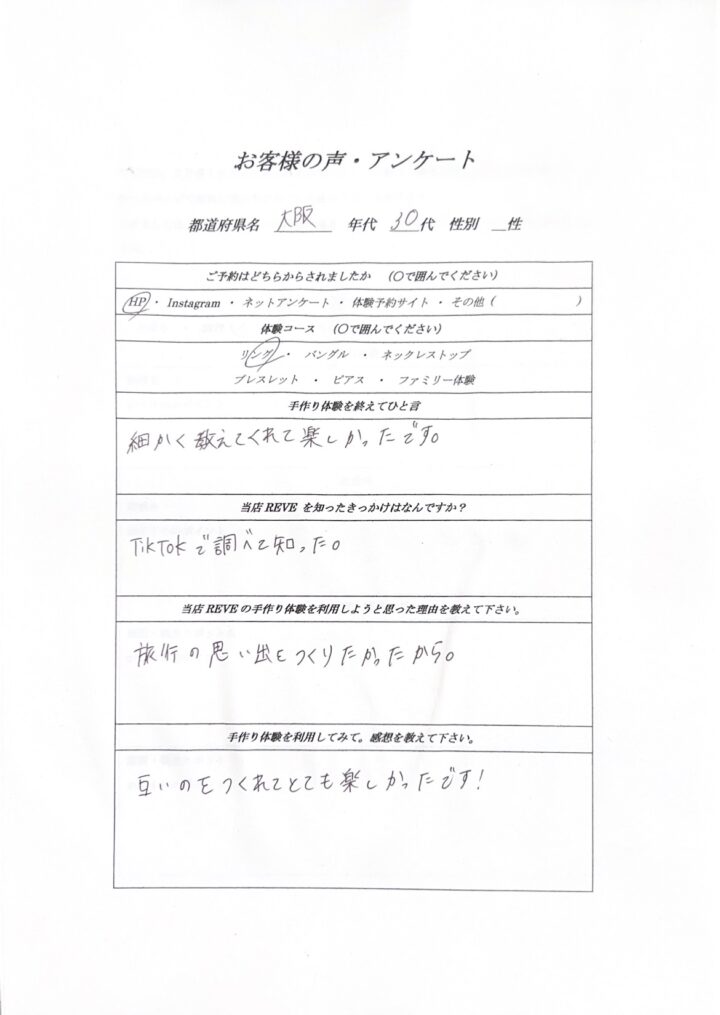 お客様の声・アンケート
都道府県名 大阪 年代 30代 性別 __性
ご予約はどちらからされましたか （〇で囲んでください）
HP ・ Instagram ・ ネットアンケート ・ 体験予約サイト ・ その他（ ）
体験コース （〇で囲んでください）
リング ・ バングル ・ ネックレストップ
ブレスレット ・ ピアス ・ ファミリー体験
手作り体験を終えてひと言
細かく教えてくれて楽しかったです。
当店 REVE を知ったきっかけはなんですか？
TikTokで調べて知った。
当店 REVE の手作り体験を利用しようと思った理由を教えて下さい。
旅行の思い出をつくりたかったから。
手作り体験を利用してみて。感想を教えて下さい。
互いのをつくれてとても楽しかったです!